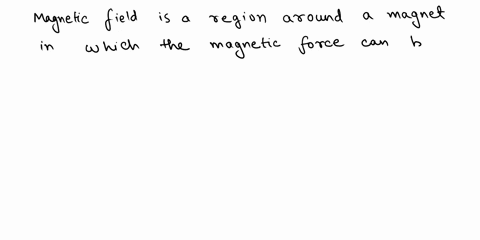 Magnetic field is a region around a magnet
in which the magnetic force can b